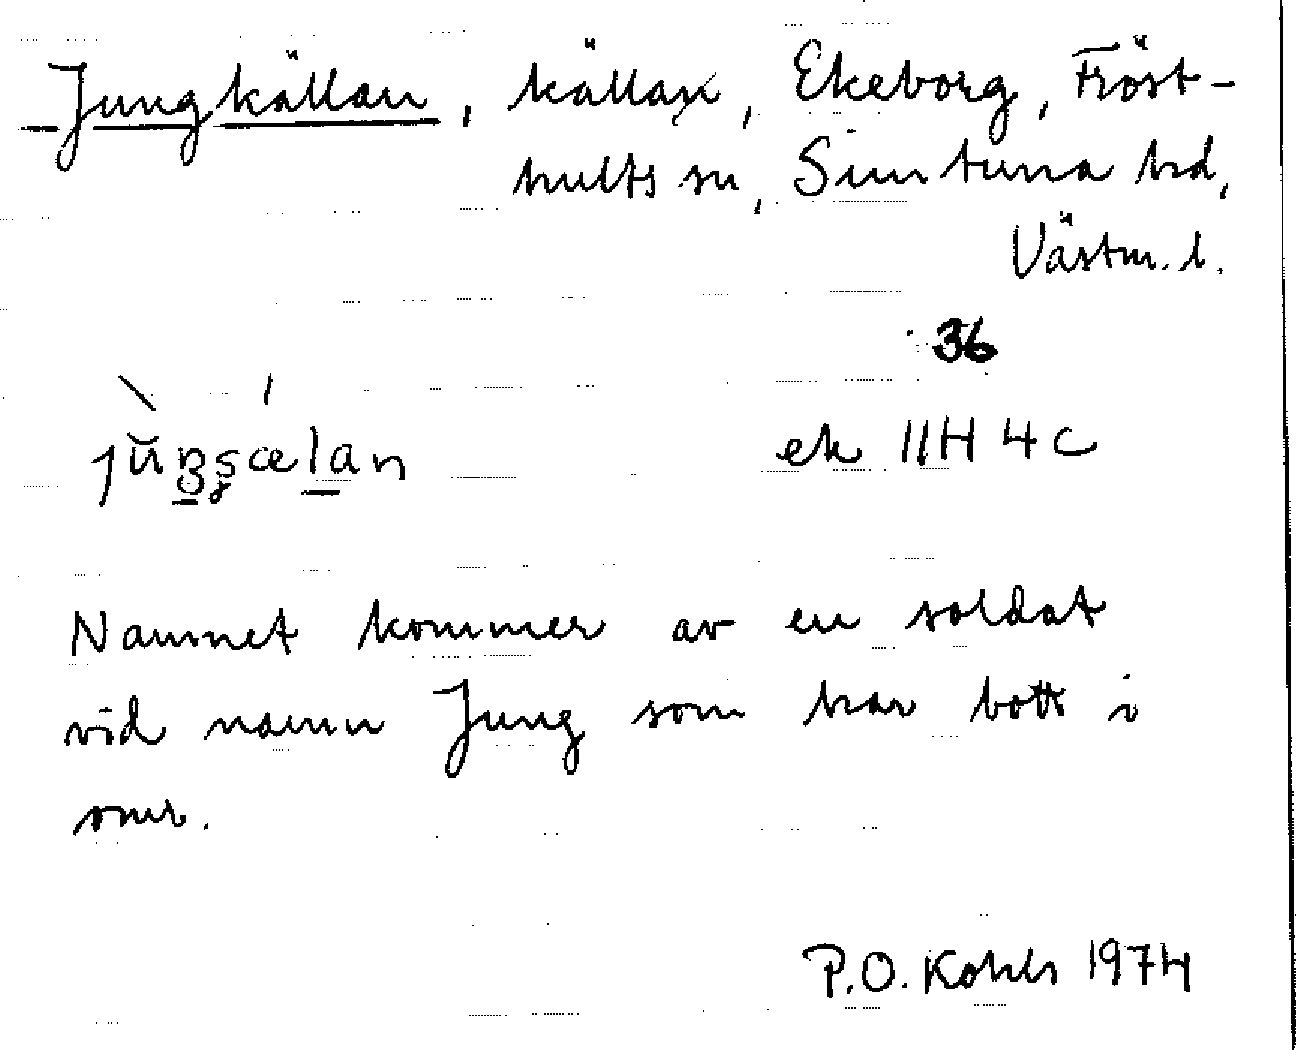 Jungkällan, källan, Ekeborg, Fröst-
hults sn, Simtuna hd,
Västm. l.
36
ek 11H 4c
Namnet kommer av en soldat
vid namn Jung som har bott i
omr.
P.O. Kohls 1974